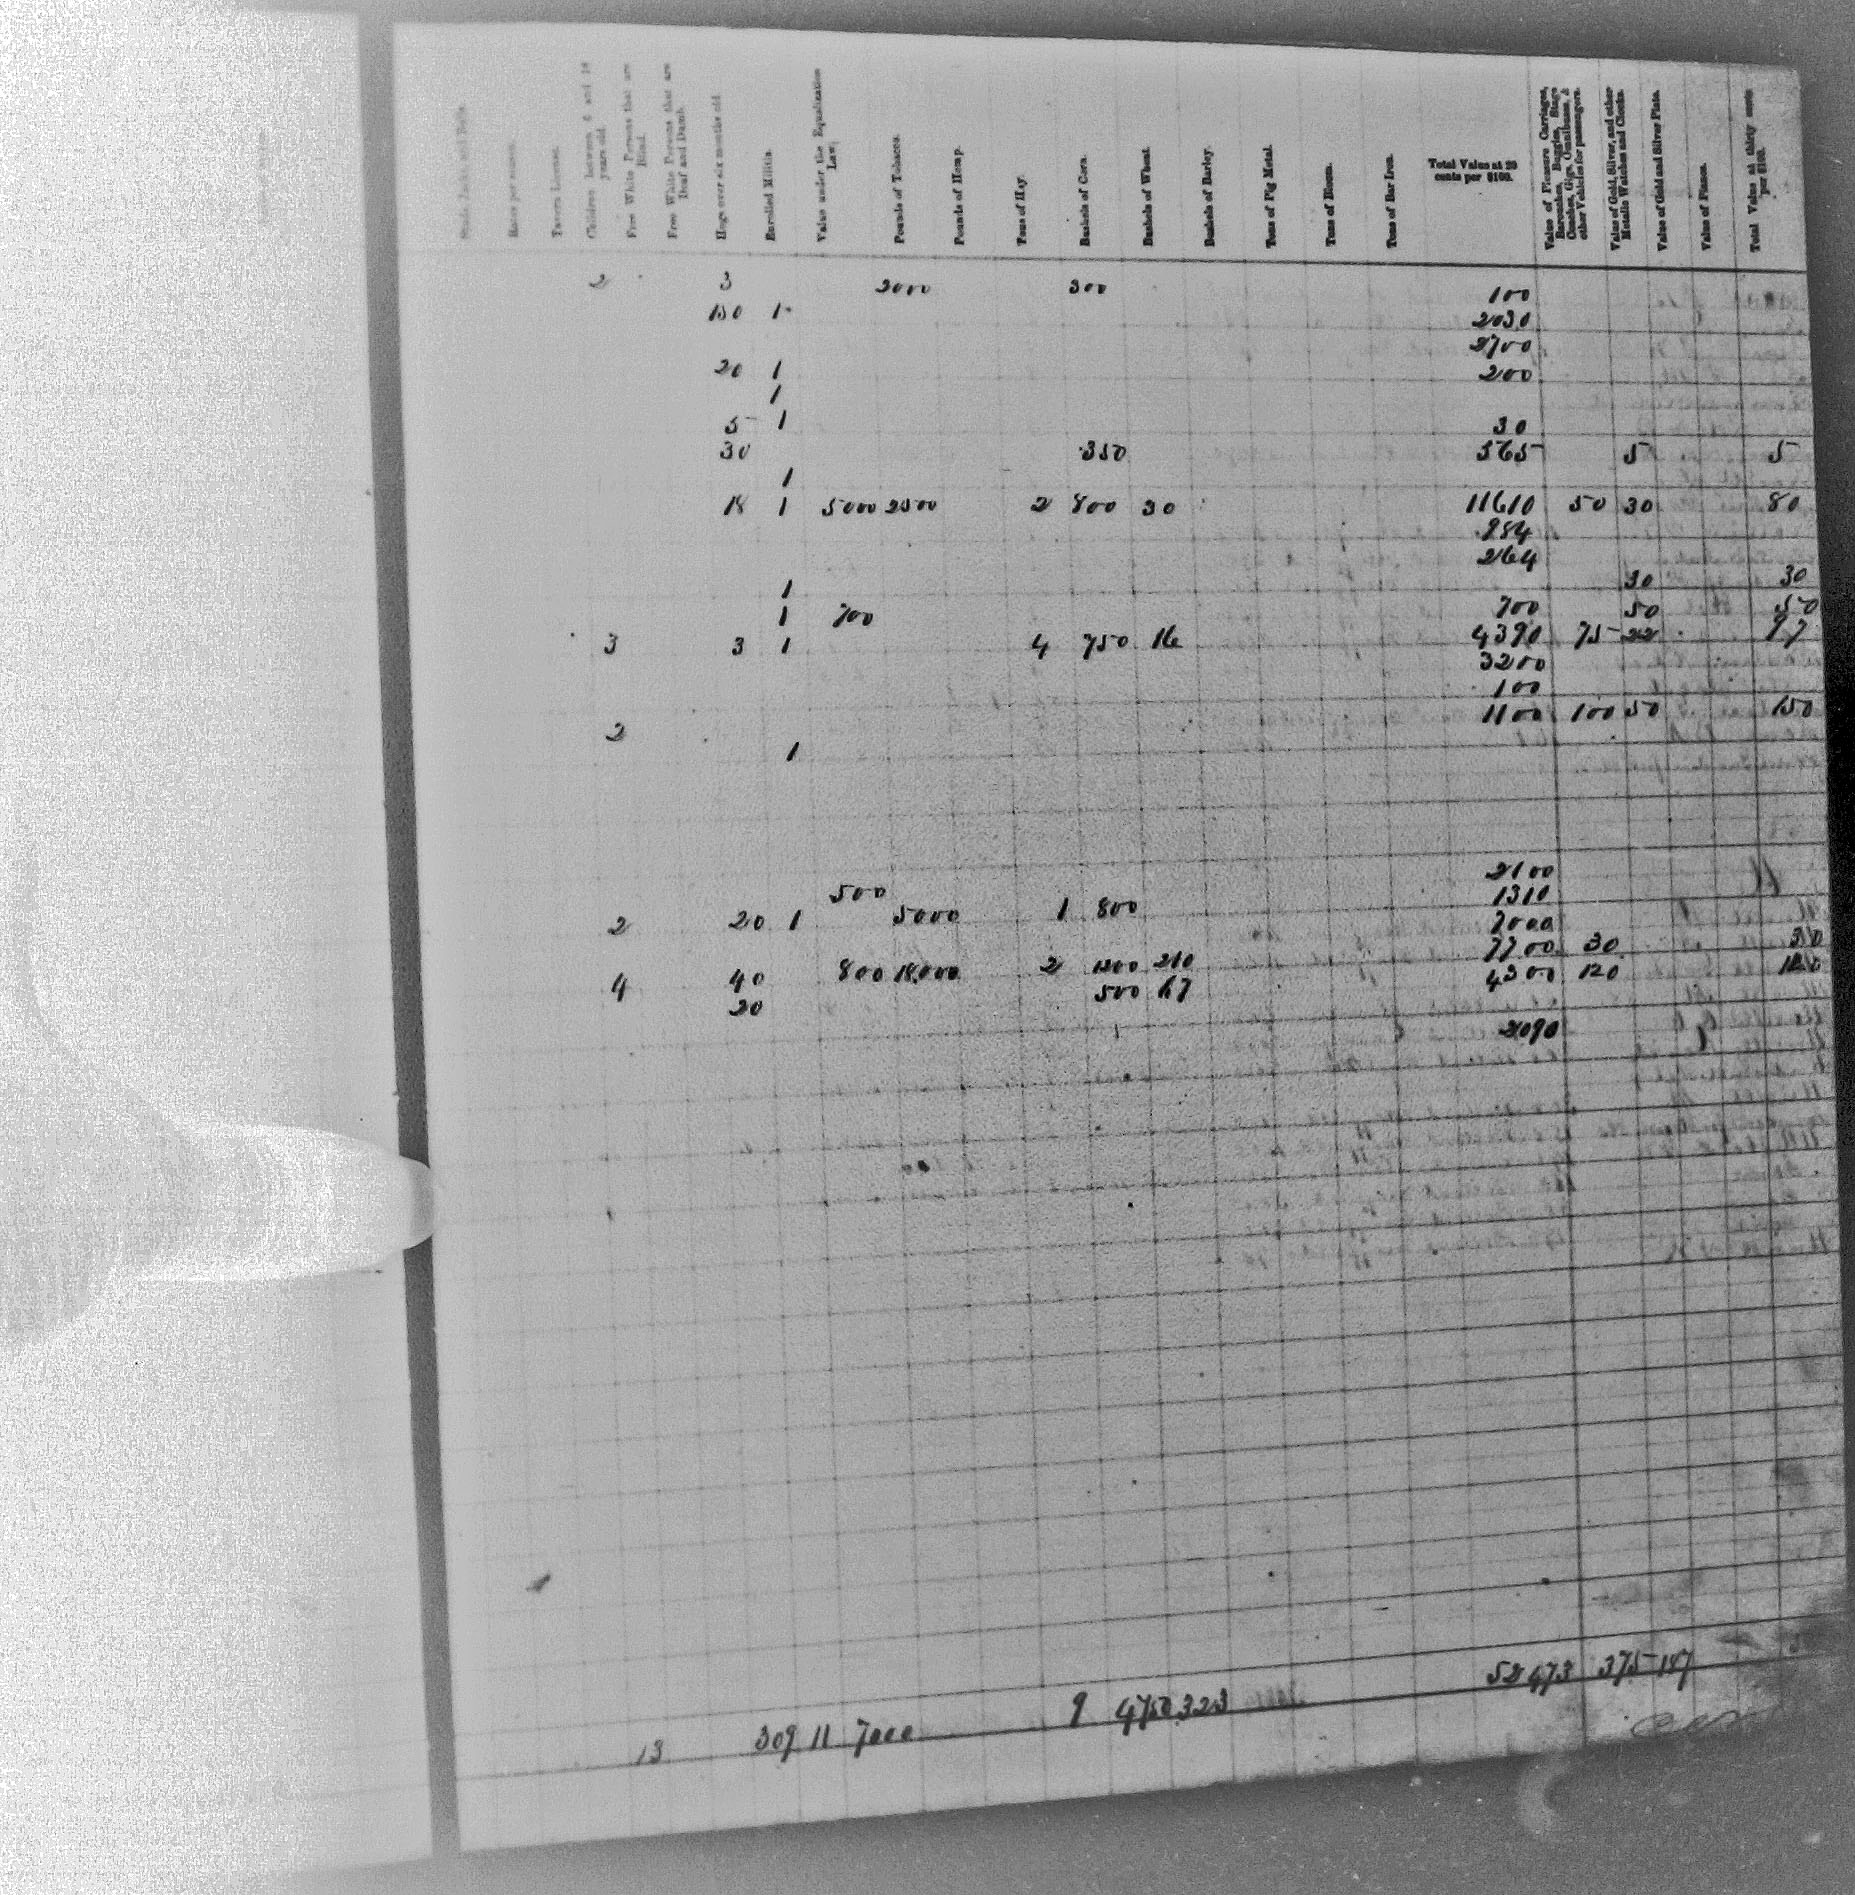 Studs, Jacks, and Bulls. Rates per season. Tavern License. Children between 6 and 18 years old. Free White Persons that are Blind. Free White Persons that are Deaf and Dumb. Hogs over six months old Enrolled Militia. Value under the Equalization Law. Pounds of Tobacco. Pounds of Hemp. Tons of Hay. Bushels of Corn. Bushels of Wheat. Bushels of Barley. Tons of Pig Metal. Tons of Bloom. Tons of Bar Iron. Total Value at 20 cents per $100. Value of Pleasure Carriages, Barouches, Buggies, Stage Coaches, Gigs, Omnibusses, & other Vehicles for passengers. Value of Gold, Silver, and other Metalic Watches and Clocks. Value of Gold and Silver Plate. Value of Pianos. Total Value at thirty cents per $100.
2 3 2000 300 100
150 1 2030
2700
20 1 200
1
5 1 30
30 350 565 5 5
1
18 1 5000 2500 2 800 30 11610 50 30 80
954
264
1 30 30
1 700 700 50 50
3 3 1 4 750 16 4390 75 22 97
3200
100
2 1100 100 50 150
1
2100
500 1310
2 20 1 5000 1 800 7000
7700 30 30
4 40 800 18,000 2 1200 210 4300 120 120
20 500 67
2090
13 309 11 7000 9 4750 323 52473 375 187